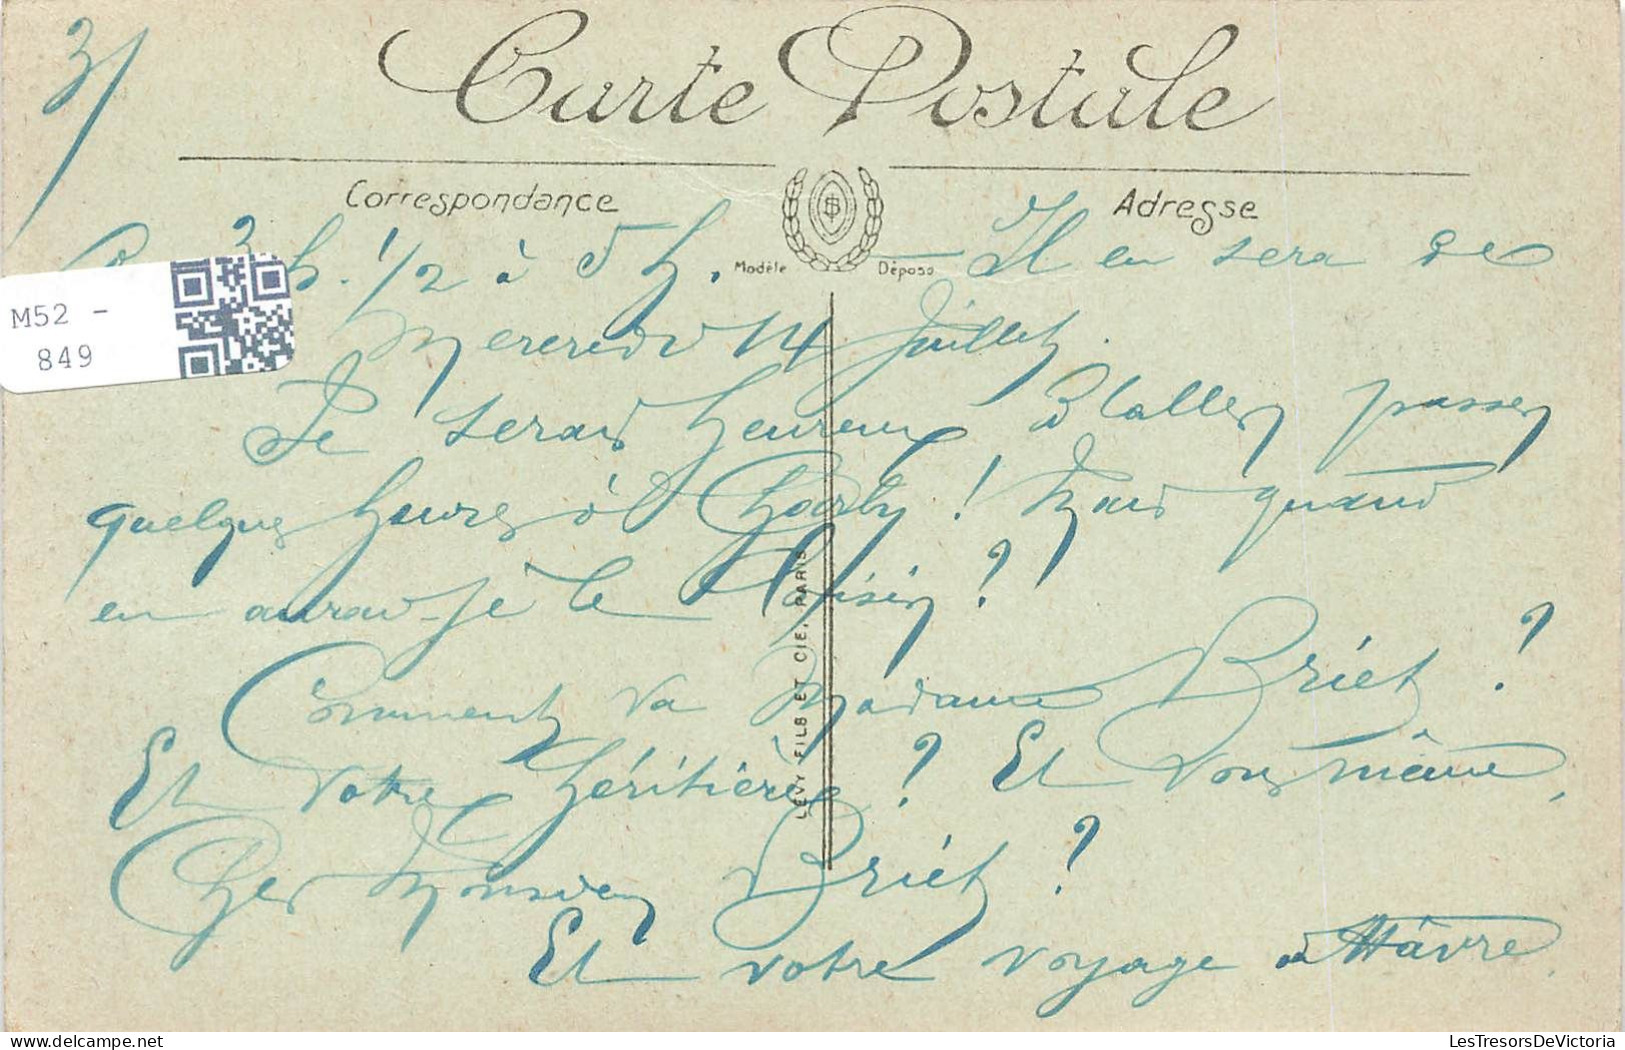 3/
Carte Postale
Correspondance
Adresse
3 h. 1/2 à 5 h. — Il en sera de
Modèle Déposé
Mercredi 14 Juillet.
Je serais heureux d'aller passer
quelques heures à Choisy ! Mais quand
en aurai-je le loisir ?
Comment va Madame Briet ?
Et votre héritière ? Et vous même,
Cher Monsieur Briet ?
Et votre voyage au Hâvre
LEVY FILS ET CIE, PARIS
M52 -
849
LesTresorsDeVictoria